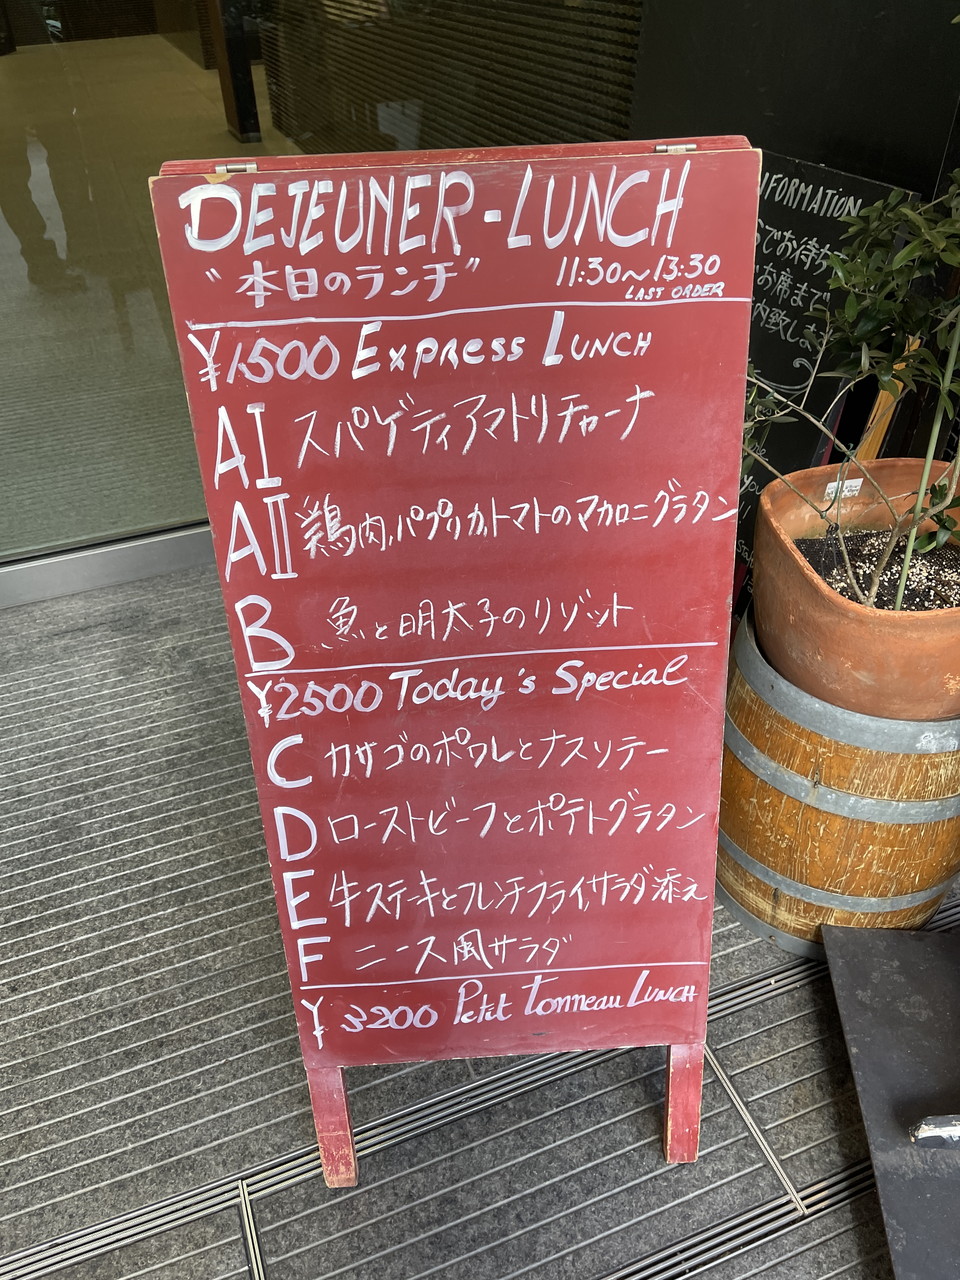 DEJEUNER-LUNCH
"本日のランチ" 11:30~13:30
LAST ORDER
¥1,500 Express Lunch
AI スパゲティアマトリチャーナ
AII 鶏肉,パプリカ,トマトのマカロニグラタン
B 魚と明太子のリゾット
¥2500 Today's Special
C カサゴのポワレとナスソテー
D ローストビーフとポテトグラタン
E 牛ステーキとフレンチフライ,サラダ添え
F ニース風サラダ
¥3200 Petit Tonneau Lunch
INFORMATION
でお待ち
お席まで
内致しま